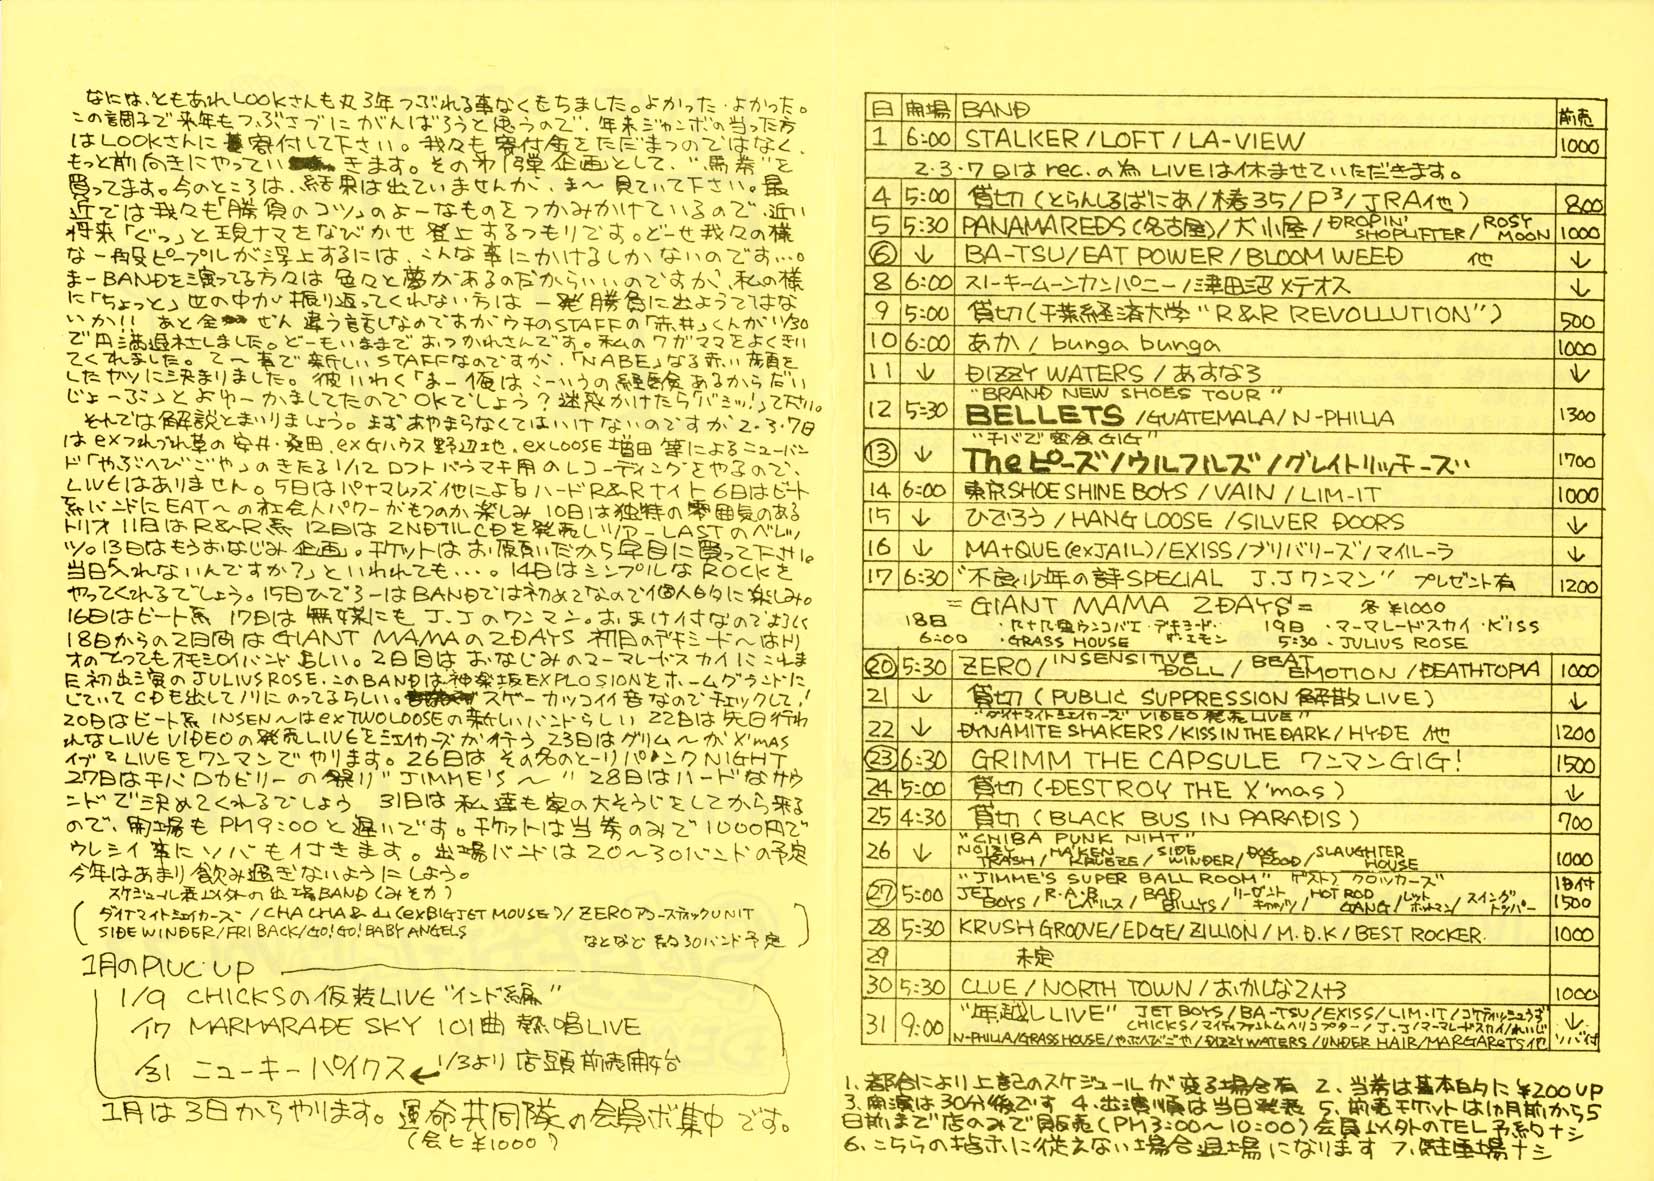 なには、ともあれLOOKさんも丸3年つぶれる事なくもちました。よかった・よかった。
この調子で来年もつぶさづにがんばろうと思うので、年末ジャンボの当った方
はLOOKさんに寄付して下さい。我々も寄付金をただまつのではなく、
もっと前向きにやっていきます。その第1弾企画として、"馬券"を
買ってます。今のところは、結果は出ていませんが、ま〜見ていて下さい。最
近では我々も「勝負のコツ」のよーなものをつかみかけているので、近い
将来「ぐっ」と現ナマをなびかせ登上するつもりです。どーせ我々の様
な一般ピープルが浮上するには、こんな事にかけるしかないのです…。
まーBANDを演ってる方々は色々と夢があるのだからいいのですが、私の様
に「ちょっと」世の中が振り返ってくれない方は一発勝負に出ようではな
いか!! あと全ぜん違う話しなのですがウチのSTAFFの「赤井」くんが11/30
で円満退社しました。どーもいままでおつかれさんです。私のワガママをよくきい
てくれました。て〜事で新しいSTAFFなのですが、「NABE」なる赤い顔を
したヤツに決まりました。彼いわく「まー俺はこーいうの経験あるからだい
じょーぶ」とよゆーかましてたのでOKでしょう?迷惑かけたら「バミッ!」て下さい。
それでは解説とまいりましょう。まずあやまらなくてはいけないのですが2・3・7日
はexつれづれ草の安井・桑田、exGハウス野辺地、exLOOSE増田等によるニューバン
ド「やぶへびごや」のきたる1/12ロフトバウマキ用のレコーディングをやるので、
LIVEはありません。5日はパナマレッズ他によるハードR&Rナイト 6日はビート
系バンドにEAT〜の社会人パワーがもつのか楽しみ 10日は独特の雰囲気のある
トリオ 11日はR&R系 12日は2NDフルCDを発売しツアーLASTのベレッ
ツ。13日はもうおなじみ企画。チケットはお願いだから早目に買って下さい。
当日「入れないんですか?」といわれても…。14日はシンプルなROCKを
やってくれるでしょう。15日ひでろーはBANDでは初めてなので個人的に楽しみ。
16日はビート系 17日は無謀にもJ.Jのワンマン。おまけ付なのでよろしく
18日からの2日間はGIANT MAMAの2DAYS 初日のデキシード〜はトリ
オのとってもオモシロイバンドらしい。2日目はおなじみのマーマレードスカイにこれま
た初出演のJULIUS ROSE.このBANDは神楽坂EXPLOSIONをホームグランドに
していてCDも出してノリにのってるらしい。スゲーカッコイイ音なのでチェックして!
20日はビート系 INSEN〜はexTWOLOOSEの新しいバンドらしい 22日は先日行わ
れなLIVE VIDEOの発売LIVEをシェイカーズが行う 23日はグリム〜がX'mas
イブをLIVEをワンマンでやります。26日はその名のとーりパンクNIGHT
27日は千葉ロカビリーの祭り"JIMME'S〜" 28日はハードなサウ
ンドで決めてくれるでしょう 31日は私達も家の大そうじをしてから来る
ので、開場もPM9:00と遅いです。チケットは当券のみで1000円で
ウレシイ事にソバも付きます。出場バンドは20〜30バンドの予定
今年はあまり飲み過ぎないようにしよう。
スケジュール表以外の出場BAND(みそか)
ダイナマイトシェイカーズ/CHA CHA & du(exBIGJET MOUSE)/ZEROアコースティックUNIT
SIDE WINDER/FRI BACK/GO!GO!BABY ANGELS
などなど約30バンド予定
1月のPIUC・UP
1/9 CHICKSの仮装LIVE"インド編"
1/17 MARMARADE SKY 101曲熱唱LIVE
1/31 ニューキーパイクス←1/3より店頭前売開始
1月は3日からやります。運命共同隊の会員ボ集中です。
(会ヒ¥1000)
日 開場 BAND 前売
1 6:00 STALKER/LOFT/LA-VIEW 1000
2・3・7日はrec.の為LIVEは休ませていただきます。
4 5:00 貸切(とらんしるばにあ/椿35/P³/JRA他) 800
5 5:30 PANAMAREDS(名古屋)/犬小屋/DROPIN' SHOPLIFTER/ROSY MOON 1000
⑥ ↓ BA-TSU/EAT POWER/BLOOM WEED 他 ↓
8 6:00 ストーキームーンカンパニー/津田沼メテオス ↓
9 5:00 貸切(千葉経済大学"R&R REVOLLUTION") 500
10 6:00 あか/bunga bunga 1000
11 ↓ DIZZY WATERS/あすなろ ↓
12 5:30 "BRAND NEW SHOES TOUR" BELLETS/GUATEMALA/N-PHILIA 1300
⑬ ↓ "千バで密会GIG" Theピーズ/ウルフルズ/グレイトリッチーズ 1700
14 6:00 東京SHOE SHINE BOYS/VAIN/LIM-IT 1000
15 ↓ ひでろう/HANG LOOSE/SILVER DOORS ↓
16 ↓ MA+QUE(exJAIL)/EXISS/ブリバリーズ/マイルーラ ↓
17 6:30 "不良少年の詩SPECIAL J.Jワンマン" プレゼント有 1200
=GIANT MAMA 2DAYS= 各¥1000
18日 ・九十九里ウンコバエ・デキシード・ザ・エモン 19日 ・マーマレードスカイ・K'ISS
6:00 ・GRASS HOUSE 5:30 ・JULIUS ROSE
⑳ 5:30 ZERO/INSENSITIVE DOLL/BEAT EMOTION/DEATHTOPIA 1000
21 ↓ 貸切(PUBLIC SUPPRESSION 解散LIVE) ↓
22 ↓ "ダイナマイトシェイカーズ VIDEO発売LIVE" DYNAMITE SHAKERS/KISS IN THE DARK/HYDE 他 1200
㉓ 6:30 GRIMM THE CAPSULE ワンマンGIG! 1500
24 5:00 貸切(DESTROY THE X'mas) ↓
25 4:30 貸切(BLACK BUS IN PARADIS) 700
26 ↓ "CHIBA PUNK NIHT" NOIZY TRASH/MA'KEN KRUEZE/SIDE WINDER/DOG FOOD/SLAUGHTER HOUSE 1000
㉗ 5:00 "JIMME'S SUPER BALL ROOM" ゲスト) クロッカーズ" JET BOYS/R・A・B レベルス/BAD BILLYS/リーゼントキャッツ/HOT ROD GANG/レッドホットマン/スイングトゥパー 1D付 1500
28 5:30 KRUSH GROOVE/EDGE/ZILLION/M.D.K/BEST ROCKER. 1000
29 未定
30 5:30 CLUE/NORTH TOWN/おかしな2人+3 1000
31 9:00 "年越しLIVE" JET BOYS/BA-TSU/EXISS/LIM-IT/
CHICKS/マイティファントムヘリコプター/J.J/マーマレードスカイ/れいじ ↓
N-PHILIA/GRASS HOUSE/やぶへびごや/DIZZY WATERS/UNDER HAIR/MARGARETS他 ソバ付
1、都合により上記のスケジュールが変る場合有 2、当券は基本的に¥200UP
3、開演は30分後です 4、出演順は当日発表 5、前売チケットは1カ月前から5
日前まで店のみで販売(PM3:00〜10:00)会員以外のTEL予約ナシ
6、こちらの指示に従えない場合退場になります 7、駐車場ナシ